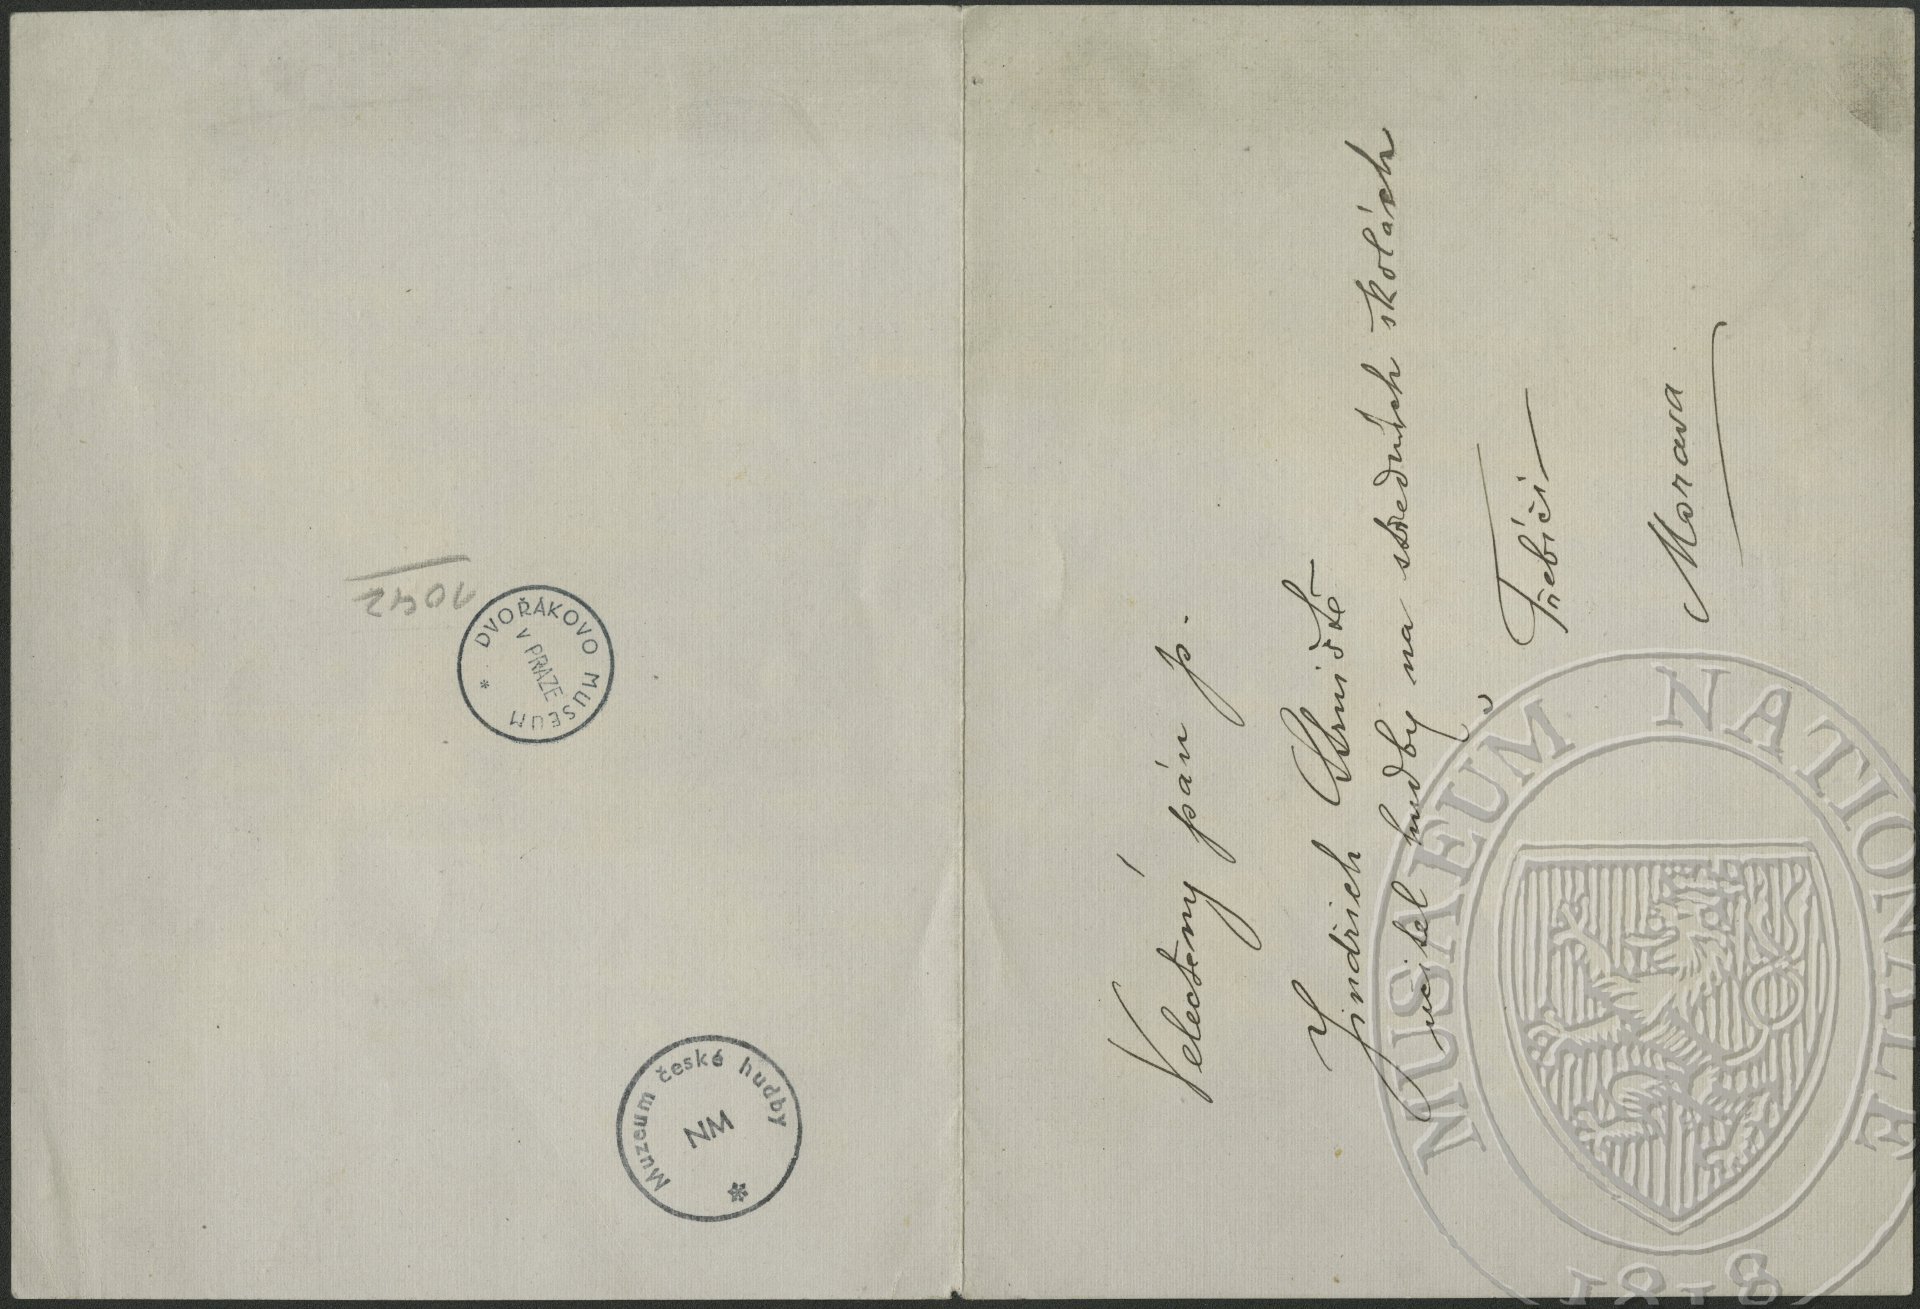 Velectěný pán p.
Jindřich
učitel hudby na středních školách
v
Třebíči
Morava
1042
DVOŘÁKOVO MUSEUM
v PRAZE
Muzeum české hudby
NM
MUSAEUM NATIONALE
1818